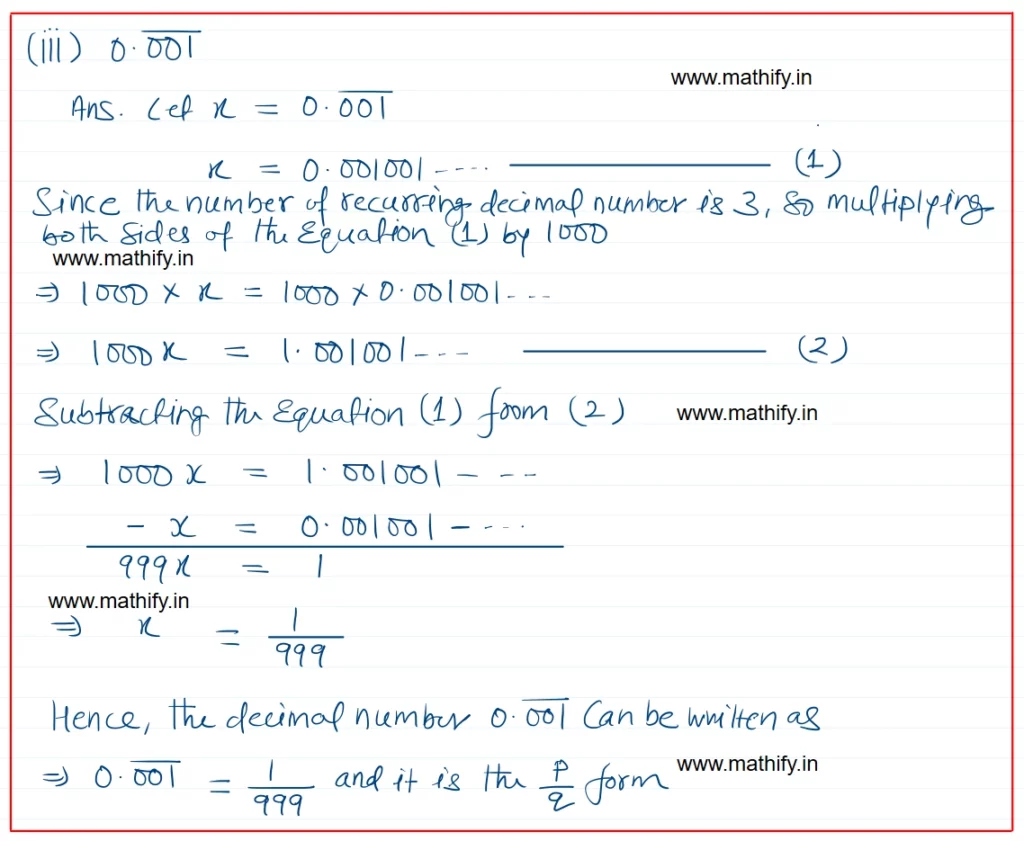 (iii) 0.0̅0̅1̅
www.mathify.in
Ans. Let x = 0.0̅0̅1̅
x = 0.001001---- (1)
Since the number of recurring decimal number is 3, so multiplying
both sides of the Equation (1) by 1000
www.mathify.in
⇒ 1000 × x = 1000 × 0.001001---
⇒ 1000x = 1.001001---- (2)
Subtracting the Equation (1) from (2) www.mathify.in
⇒ 1000x = 1.001001----
- x = 0.001001-----
999x = 1
www.mathify.in
⇒ x = 1/999
Hence, the decimal number 0.0̅0̅1̅ Can be written as
⇒ 0.0̅0̅1̅ = 1/999 and it is the p/q form www.mathify.in